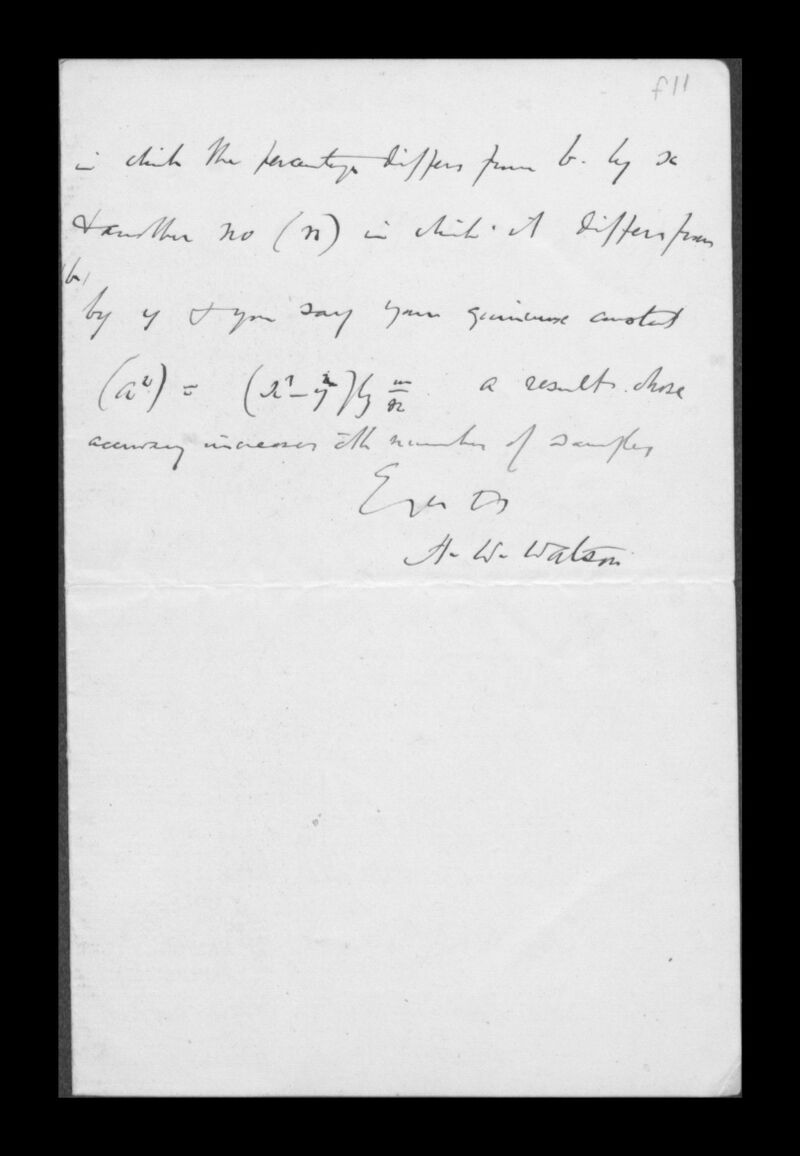 f11
in which the percentage differs from b. by x
& another no (n) in which it differs from
(b)
by y & you say your constant
(a²) = (x²-y²) m/n a result whose
accuracy increases with number of samples
Ever
H. W. Watson